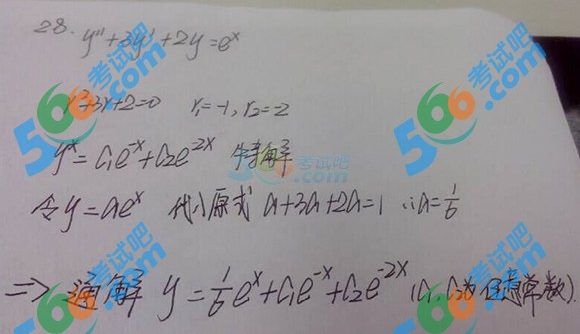 28. y''+3y'+2y=eˣ
r²+3r+2=0 r₁=-1, r₂=-2
y*=C₁e⁻ˣ+C₂e⁻²ˣ 特解
令y=aeˣ 代入原式 a+3a+2a=1 ∴a=1/6
=> 通解 y=1/6eˣ+C₁e⁻ˣ+C₂e⁻²ˣ (C₁, C₂为任意常数)
566考试吧.com
566考试吧.com
566考试吧.com
566考试吧.com
566考试吧.com